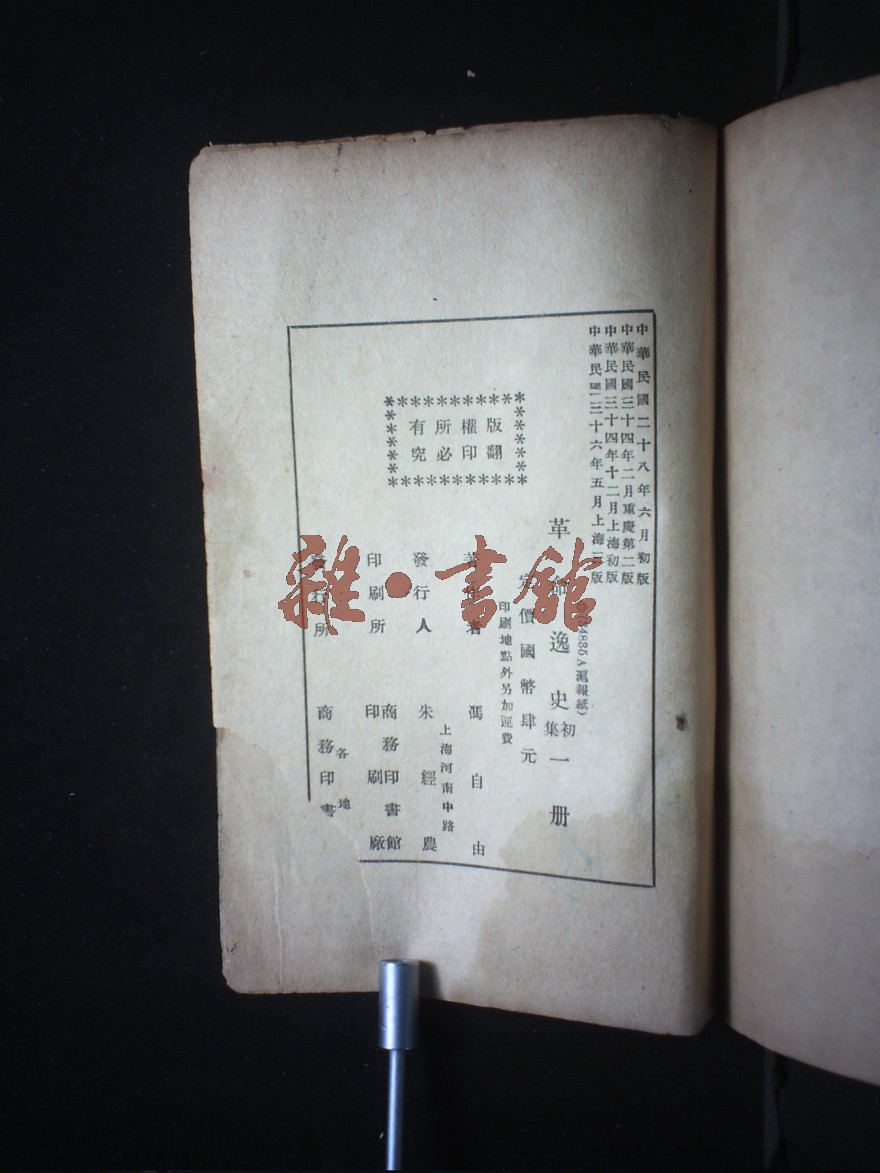 中華民國二十八年六月初版
中華民國三十四年二月重慶第二版
中華民國三十四年十二月上海初版
中華民國三十六年五月上海三版
84835A滬報紙)
革命逸史初集一册
定價國幣肆元
印刷地點外另加運費
版權所有
翻印必究
著作者 馮自由
發行人 朱經農
上海河南中路
印刷所 商務印書館印刷廠
發行所 商務印書
各地
雜·書館